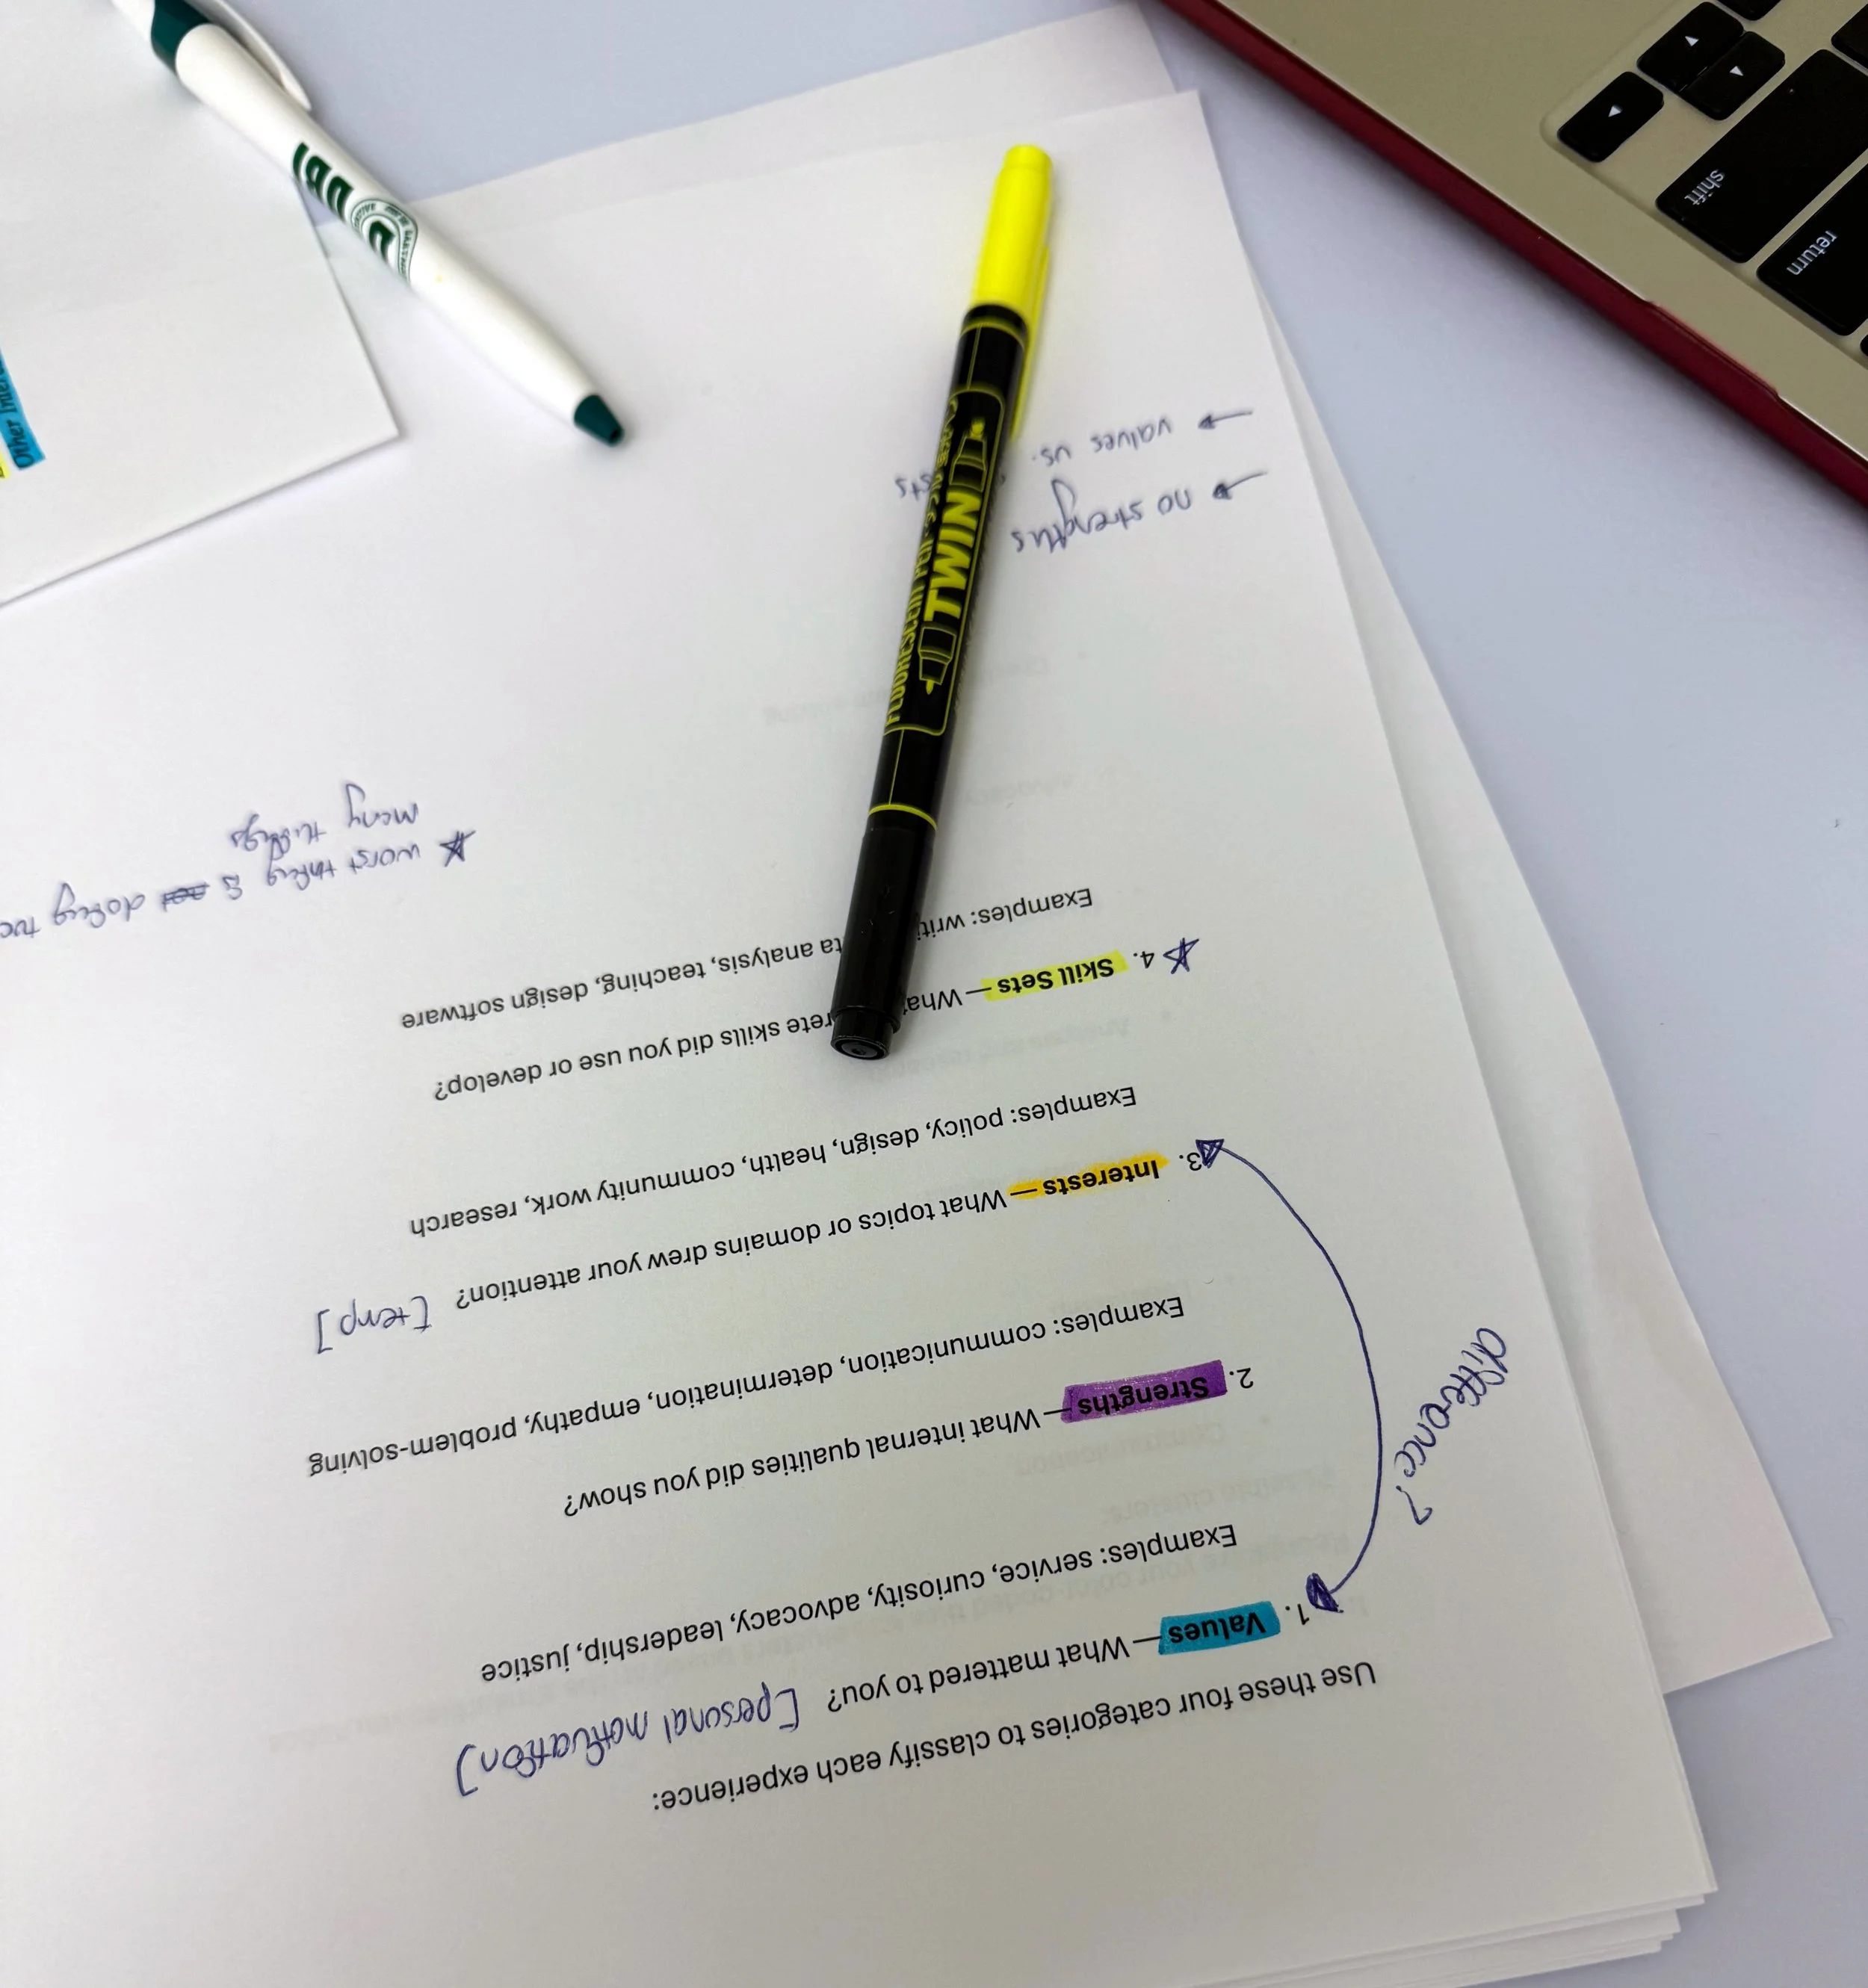 Use these four categories to classify each experience:
1. Values — What mattered to you? [personal motivation]
Examples: service, curiosity, advocacy, leadership, justice
difference?
2. Strengths — What internal qualities did you show?
Examples: communication, determination, empathy, problem-solving
3. Interests — What topics or domains drew your attention? [temp]
Examples: policy, design, health, community work, research
4. Skill Sets — What rete skills did you use or develop?
Examples: writi ta analysis, teaching, design software
worst thing is doing
many things
no strengths
values vs. sts
FLUORESCENT PEN
TWIN
Other Inter
shift
return